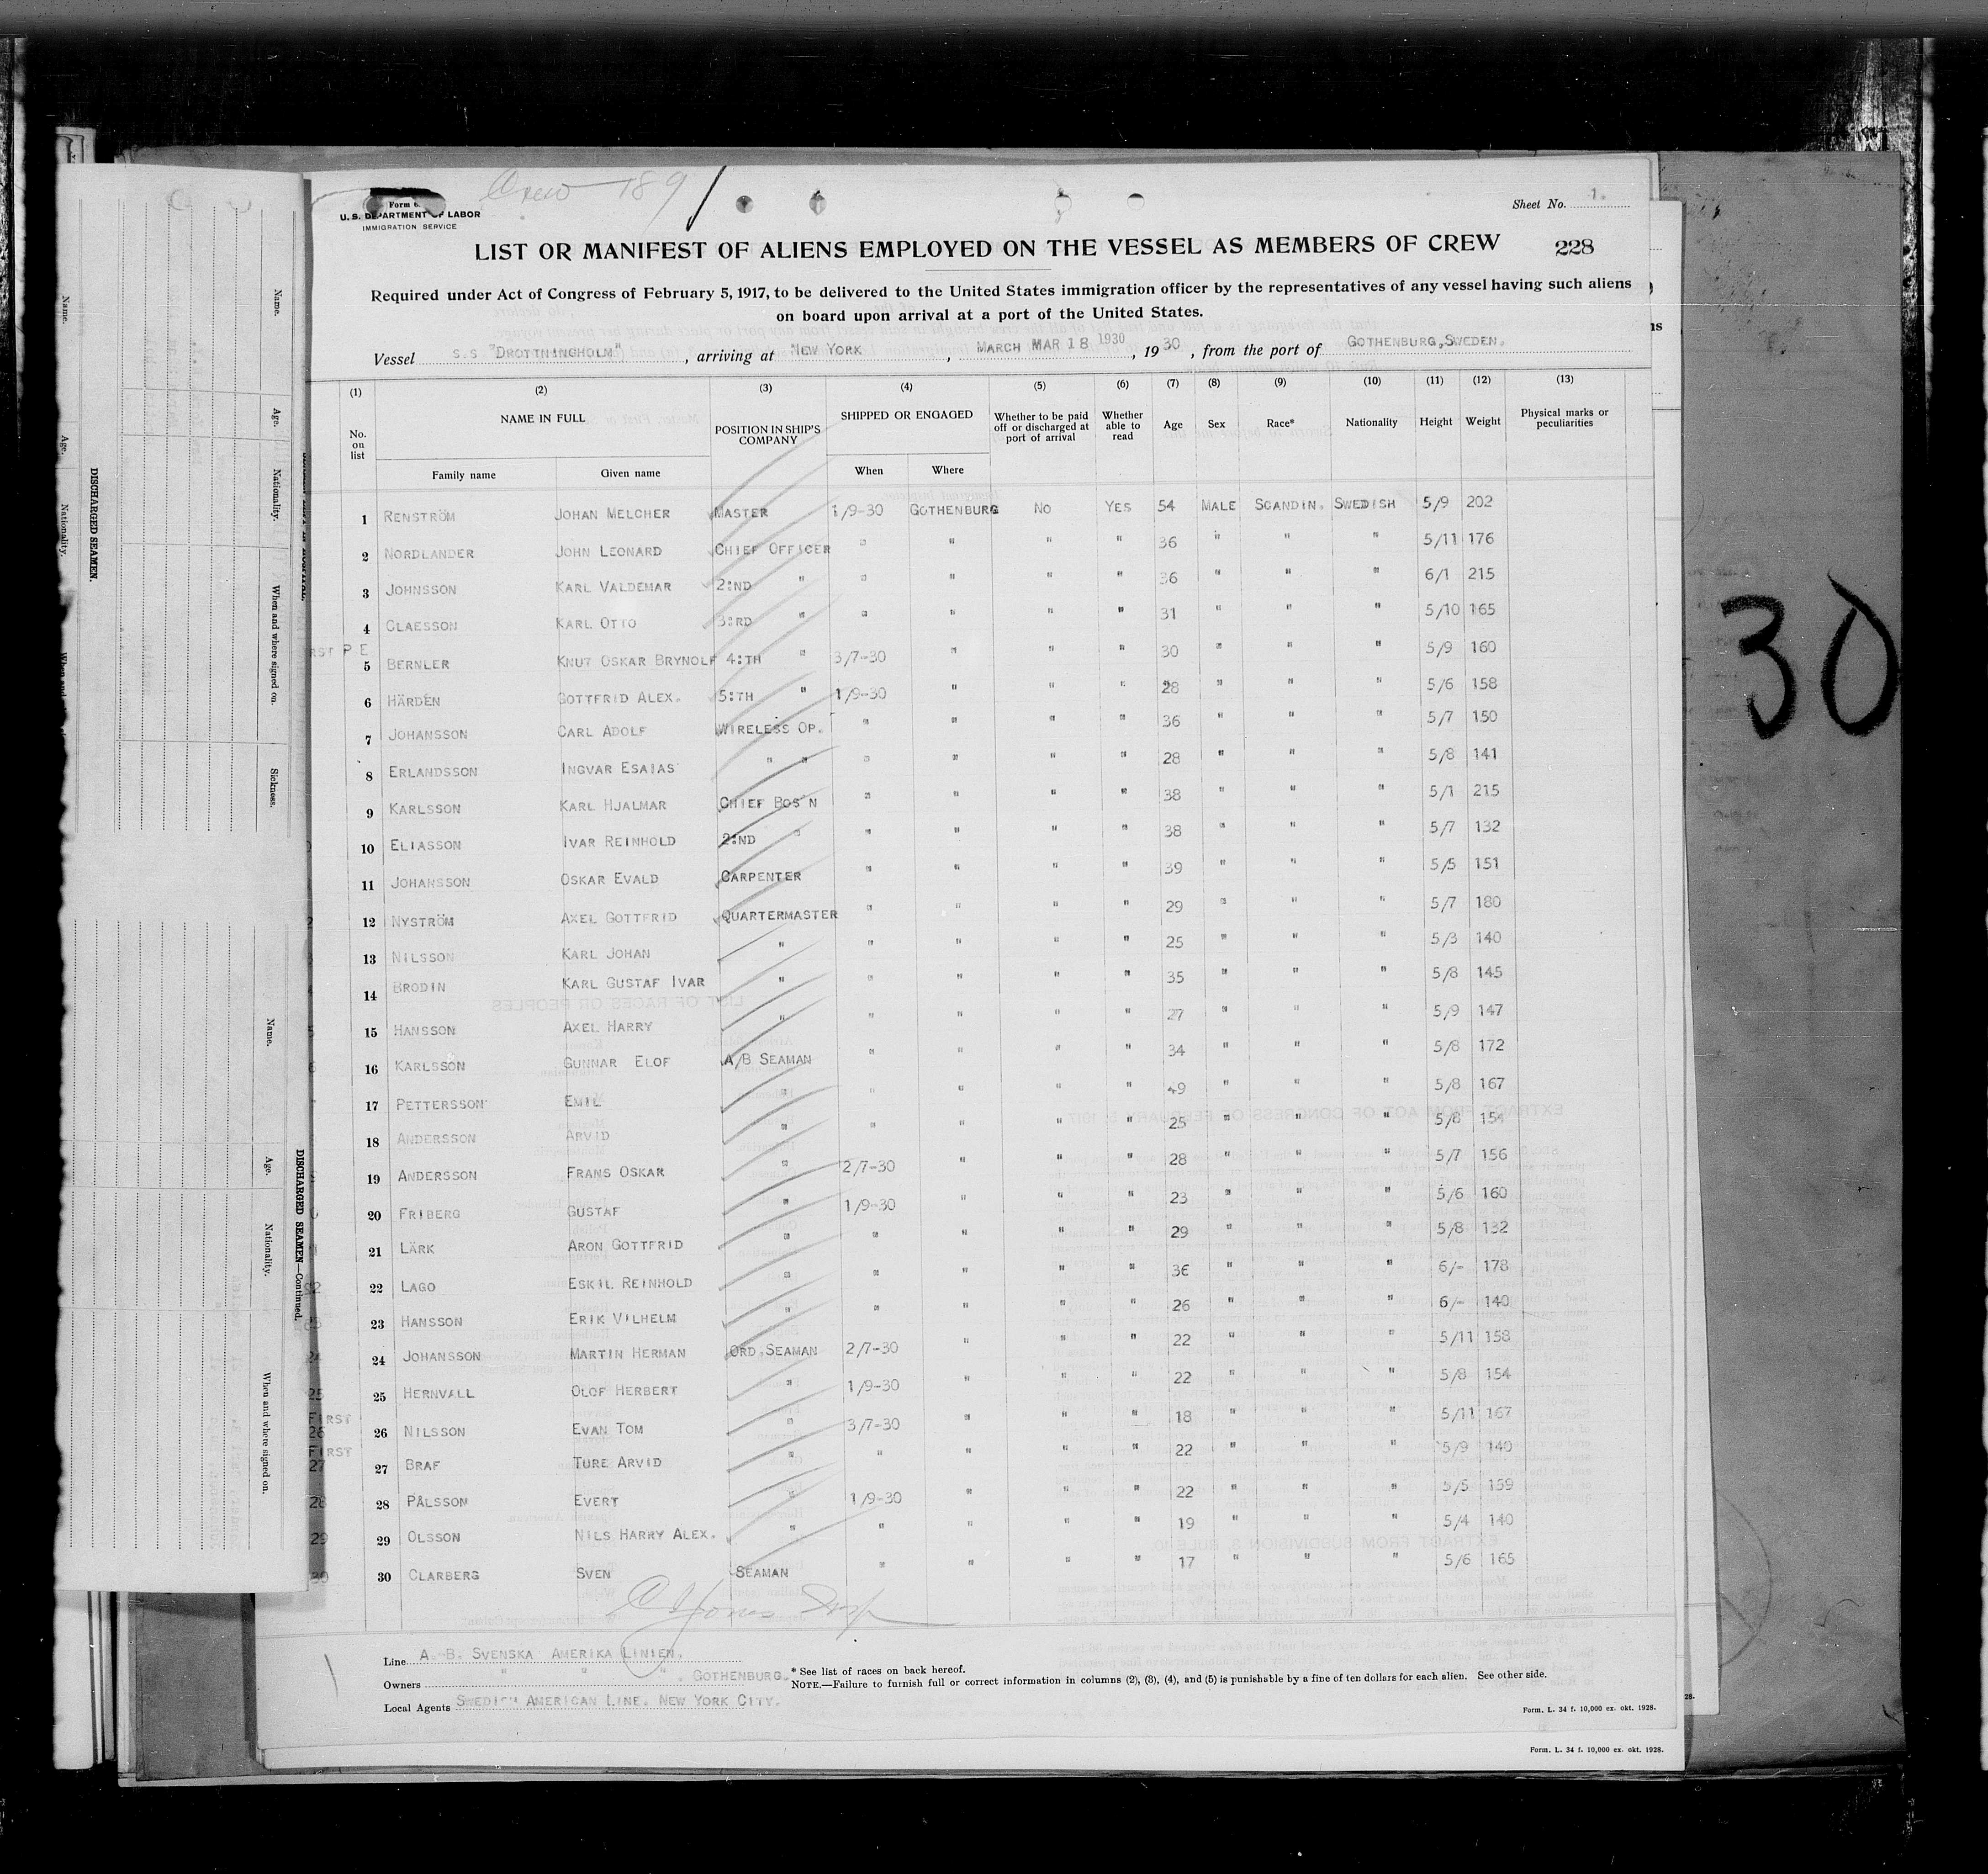 Crew 189
Form 6
U. S. DEPARTMENT OF LABOR
IMMIGRATION SERVICE
Sheet No. 1.
LIST OR MANIFEST OF ALIENS EMPLOYED ON THE VESSEL AS MEMBERS OF CREW 228
Required under Act of Congress of February 5, 1917, to be delivered to the United States immigration officer by the representatives of any vessel having such aliens
on board upon arrival at a port of the United States.
Vessel S.S "DROTTNINGHOLM", arriving at NEW YORK, MARCH MAR 18 1930, 1930, from the port of GOTHENBURG, SWEDEN.
(1) (2) (3) (4) (5) (6) (7) (8) (9) (10) (11) (12) (13)
No. on list NAME IN FULL POSITION IN SHIP'S COMPANY SHIPPED OR ENGAGED Whether to be paid off or discharged at port of arrival Whether able to read Age Sex Race* Nationality Height Weight Physical marks or peculiarities
Family name Given name When Where
1 RENSTRÖM JOHAN MELCHER MASTER 1/9-30 GOTHENBURG NO YES 54 MALE SCANDIN. SWEDISH 5/9 202
2 NORDLANDER JOHN LEONARD CHIEF OFFICER " " " " 36 " " " 5/11 176
3 JOHNSSON KARL VALDEMAR 2:ND " " " " " 36 " " " 6/1 215
4 CLAESSON KARL OTTO 3:RD " " " " " 31 " " " 5/10 165
5 BERNLER KNUT OSKAR BRYNOLF 4:TH " 3/7-30 " " " 30 " " " 5/9 160
6 HÄRDÉN GOTTFRID ALEX. 5:TH " 1/9-30 " " " 28 " " " 5/6 158
7 JOHANSSON CARL ADOLF WIRELESS OP. " " " " 36 " " " 5/7 150
8 ERLANDSSON INGVAR ESAIAS " " " " " " 28 " " " 5/8 141
9 KARLSSON KARL HJALMAR CHIEF BOS'N " " " " 38 " " " 5/1 215
10 ELIASSON IVAR REINHOLD 2:ND " " " " " 38 " " " 5/7 132
11 JOHANSSON OSKAR EVALD CARPENTER " " " " 39 " " " 5/5 151
12 NYSTRÖM AXEL GOTTFRID QUARTERMASTER " " " " 29 " " " 5/7 180
13 NILSSON KARL JOHAN " " " " " 25 " " " 5/3 140
14 BRODIN KARL GUSTAF IVAR " " " " " 35 " " " 5/8 145
15 HANSSON AXEL HARRY " " " " " 27 " " " 5/9 147
16 KARLSSON GUNNAR ELOF A/B SEAMAN " " " " 34 " " " 5/8 172
17 PETTERSSON EMIL " " " " " 49 " " " 5/8 167
18 ANDERSSON ARVID " " " " " 25 " " " 5/8 154
19 ANDERSSON FRANS OSKAR " 2/7-30 " " " 28 " " " 5/7 156
20 FRIBERG GUSTAF " 1/9-30 " " " 23 " " " 5/6 160
21 LÄRK ARON GOTTFRID " " " " " 29 " " " 5/8 132
22 LAGO ESKIL REINHOLD " " " " " 36 " " " 6/- 178
23 HANSSON ERIK VILHELM " " " " " 26 " " " 6/- 140
24 JOHANSSON MARTIN HERMAN ORD. SEAMAN 2/7-30 " " " 22 " " " 5/11 158
25 HERNVALL OLOF HERBERT " 1/9-30 " " " 22 " " " 5/8 154
26 NILSSON EVAN TOM " 3/7-30 " " " 18 " " " 5/11 167
27 BRAF TURE ARVID " " " " " 22 " " " 5/9 140
28 PÅLSSON EVERT " 1/9-30 " " " 22 " " " 5/5 159
29 OLSSON NILS HARRY ALEX. " " " " " 19 " " " 5/4 140
30 CLARBERG SVEN SEAMAN " " " " 17 " " " 5/6 165
Line A.-B. SVENSKA AMERIKA LINIEN.
Owners " " " . GOTHENBURG.
Local Agents SWEDISH AMERICAN LINE. NEW YORK CITY.
* See list of races on back hereof.
NOTE.—Failure to furnish full or correct information in columns (2), (3), (4), and (5) is punishable by a fine of ten dollars for each alien. See other side.
Form. L. 34 f. 10,000 ex. okt. 1928.
Form. L. 34 f. 10,000 ex. okt. 1928.
30
Name. Age. Nationality. When and where signed on. Sickness.
DISCHARGED SEAMEN.
Name. Age. Nationality. When and where signed on.
DISCHARGED SEAMEN—Continued.